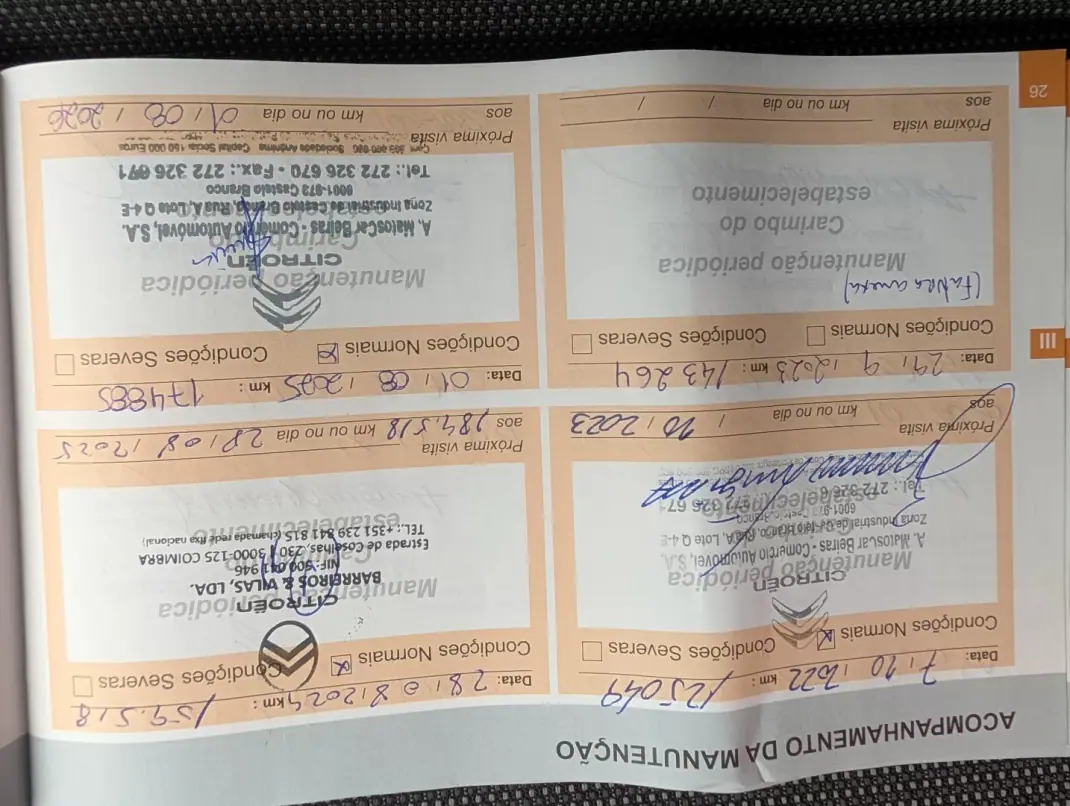 ACOMPANHAMENTO DA MANUTENÇÃO
Data: 7 / 10 / 2022 km: 125049
Condições Normais ☒ Condições Severas ☐
CITROËN
Manutenção periódica
A. Matoscar Beiras - Comércio Automóvel, S.A.
Zona Industrial de Castelo Branco, Rua A, Lote Q 4-E
estabelecimento
Próxima visita
aos km ou no dia / 10 / 2023
Data: 29 / 9 / 2023 km: 143264
Condições Normais ☐ Condições Severas ☐
(Fatura anexa)
Manutenção periódica
Carimbo do
estabelecimento
Próxima visita
aos km ou no dia / /
Data: 28 / 08 / 2024 km: 159.518
Condições Normais ☒ Condições Severas ☐
CITROËN
Manutenção periódica
BARREIROS & VILAS, LDA.
Estrada de Coselhas, 230 3000-125 COIMBRA
TEL.: +351 239 841 815 (chamada rede fixa nacional)
estabelecimento
Próxima visita
aos 184.518 km ou no dia 28 / 08 / 2025
Data: 01 / 08 / 2025 km: 174885
Condições Normais ☒ Condições Severas ☐
Manutenção periódica
CITROËN
A. MatosCar Beiras - Comércio Automóvel, S.A.
Zona Industrial de Castelo Branco, Rua A, Lote Q 4-E
6001-973 Castelo Branco
Tel.: 272 326 670 • Fax.: 272 326 671
Sociedade Anónima Capital Social 150 000 Euros
Próxima visita
aos km ou no dia 01 / 08 / 2026
III
26